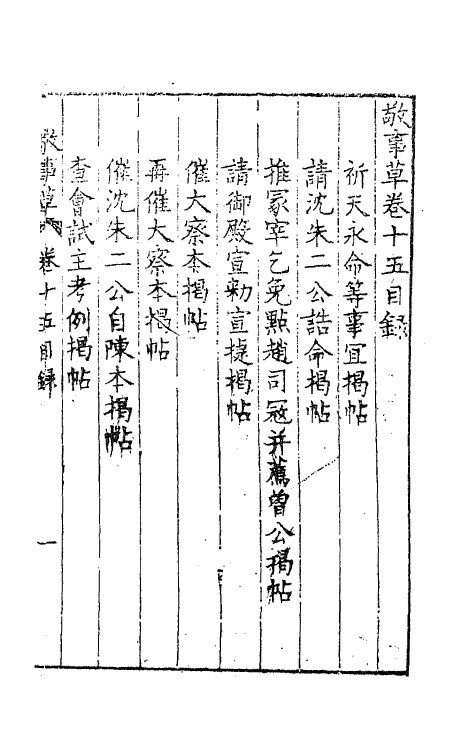 敬事草卷十五目録
祈天永命等事冝揭帖
請沈朱二公誥命揭帖
推冡宰乞免點趙司冦并薦曽公揭帖
請御殿宣勑宣捷揭帖
催大察本揭帖
再催大察本揭帖
催沈朱二公自陳本揭帖
查會試主考例揭帖
敬事草 卷十五目録 一